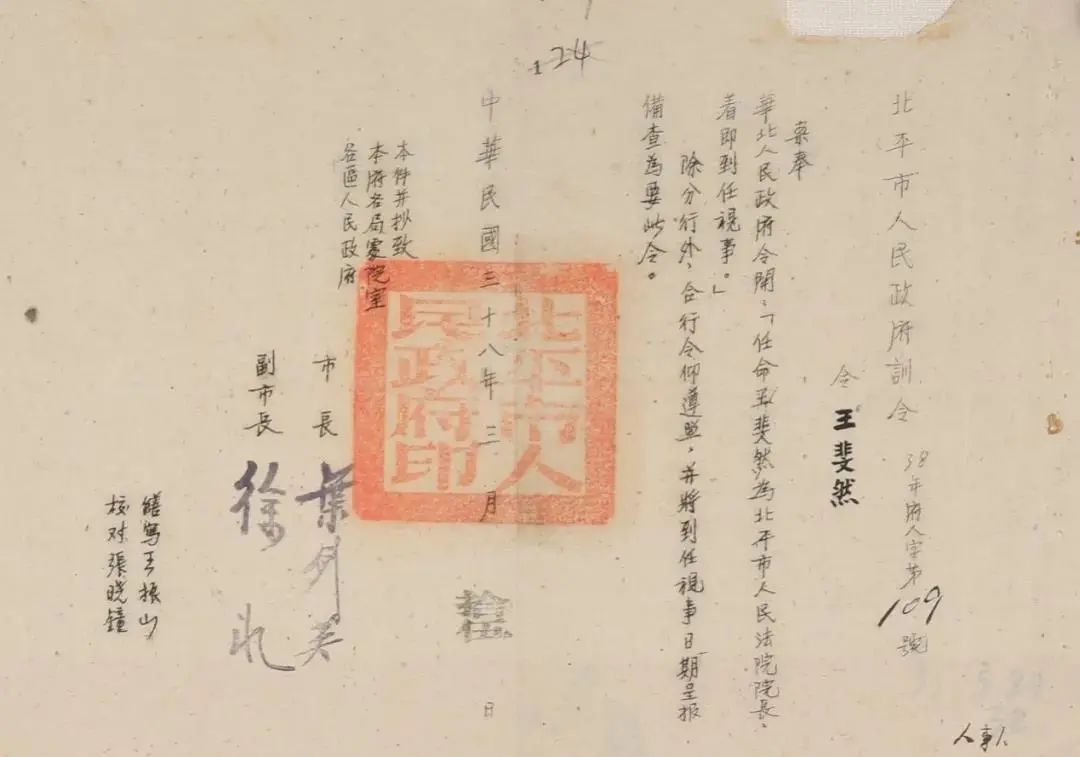 北平市人民政府訓令
38年府人字第109號
令 王斐然
案奉
華北人民政府令開：「任命王斐然為北平市人民法院院長，
着即到任視事。」
除分行外，合行令仰遵照，并將到任視事日期呈报
備查為要此令。
中華民國三十八年三月拾伍日
北平市人
民政府印
本件并抄致
本府各局處院室
各區人民政府
市長 葉剑英
副市長 徐冰
繕写王振山
校对張晓鐘
124
人事1